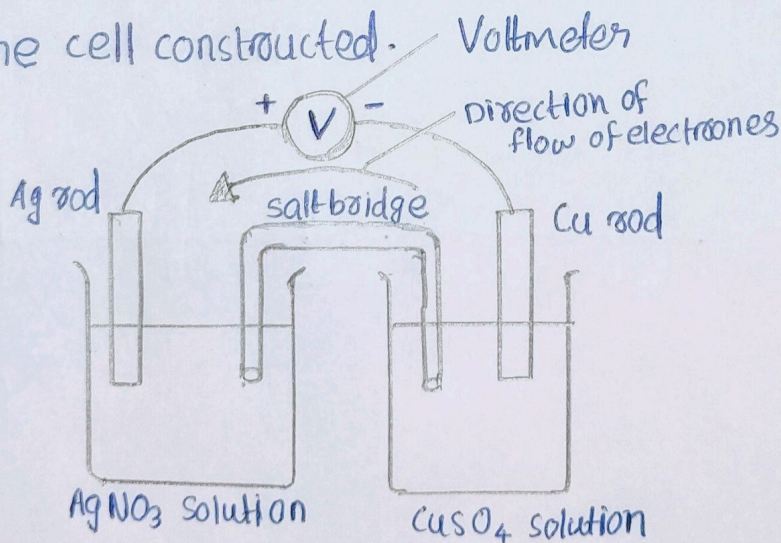 ne cell constructed.
Voltmeter
+ V -
Direction of
flow of electroones
Ag rod
saltbridge
Cu rod
AgNO3 solution
CuSO4 solution